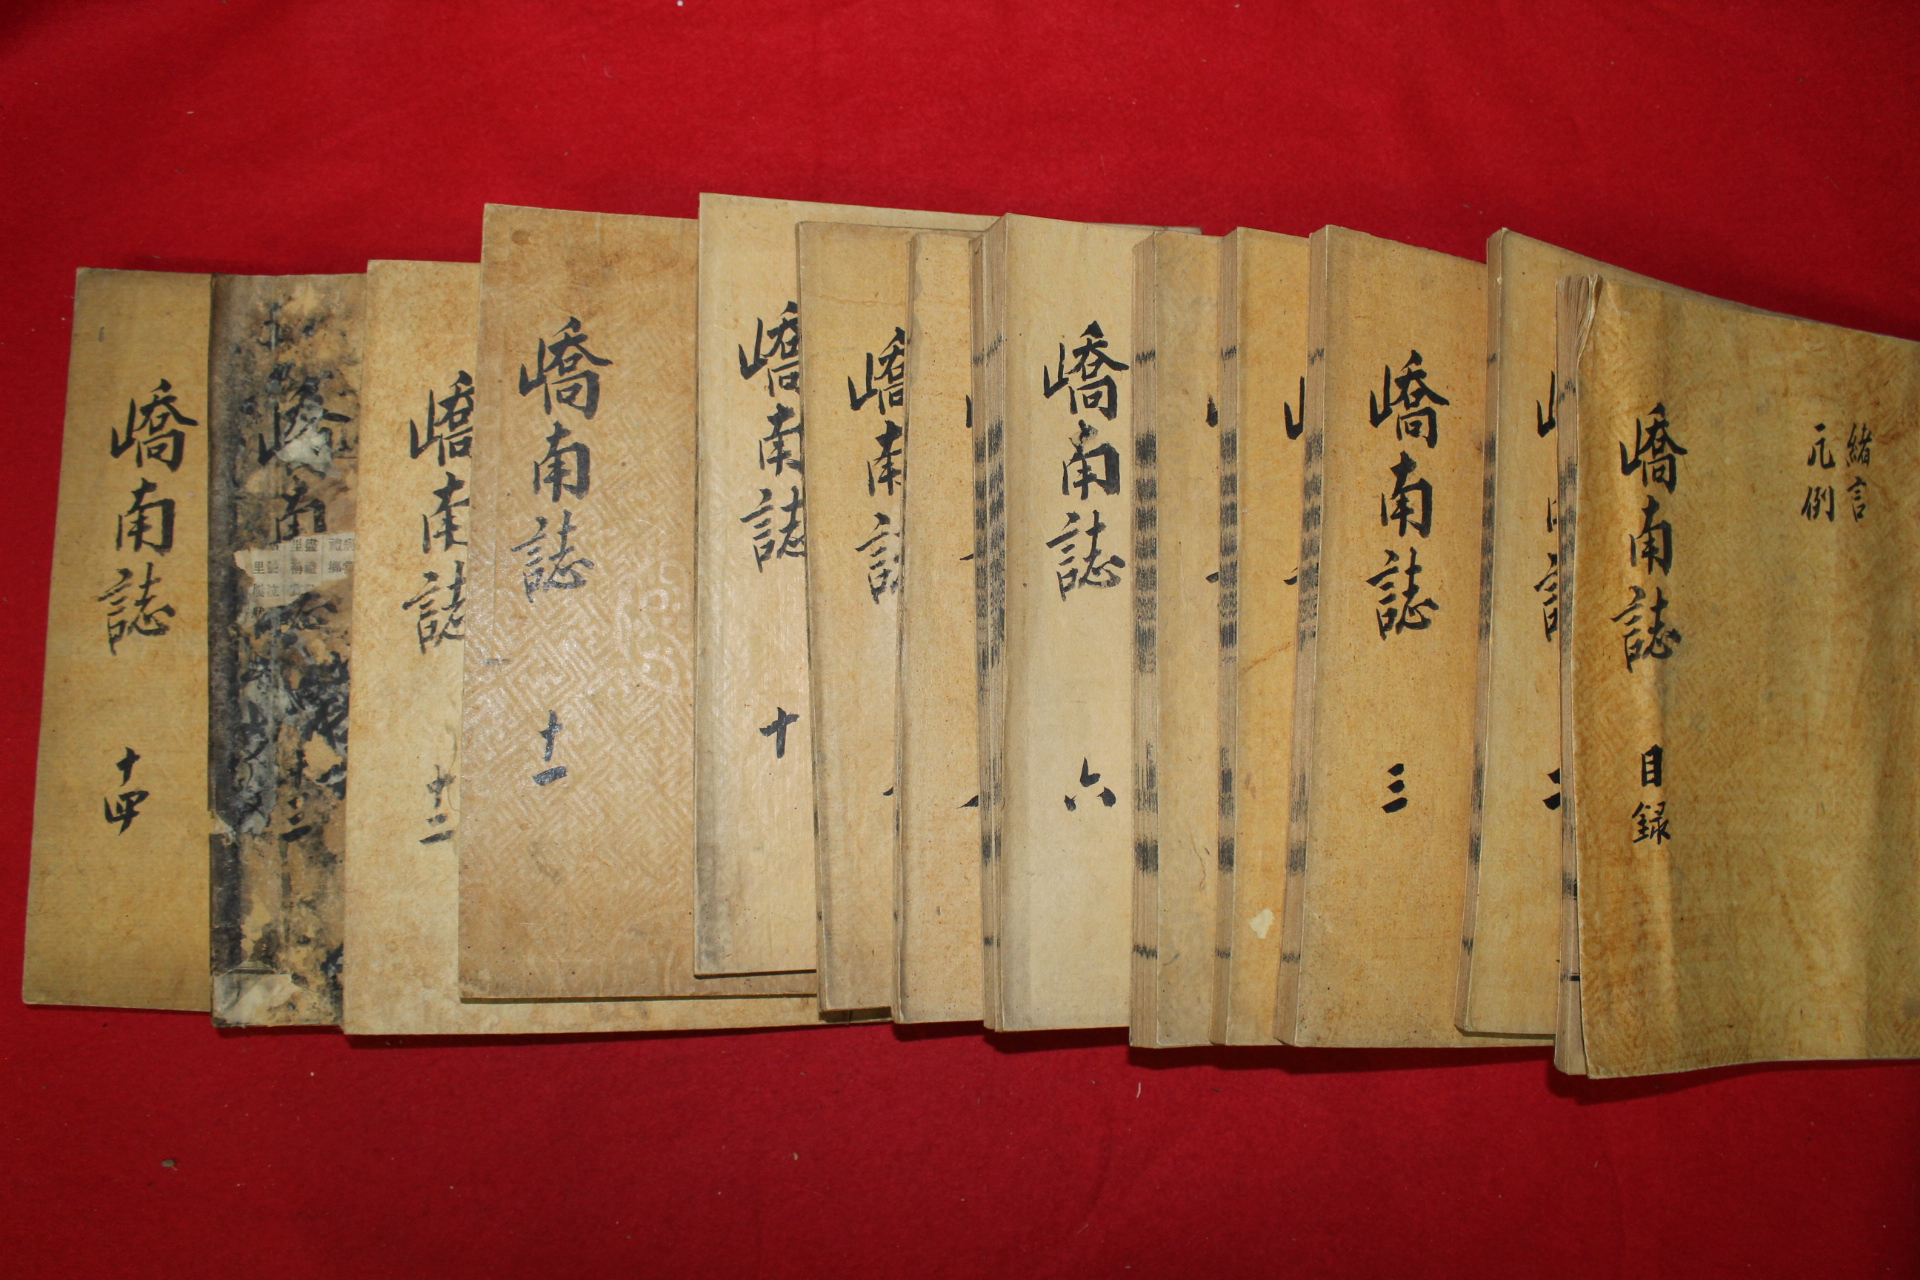 緒言
凡例
嶠南誌 目録
嶠南誌 三
嶠南誌 六
嶠南誌
嶠南誌 十
嶠南誌 十一
嶠南誌 十二
嶠南 十三
嶠南誌 十四